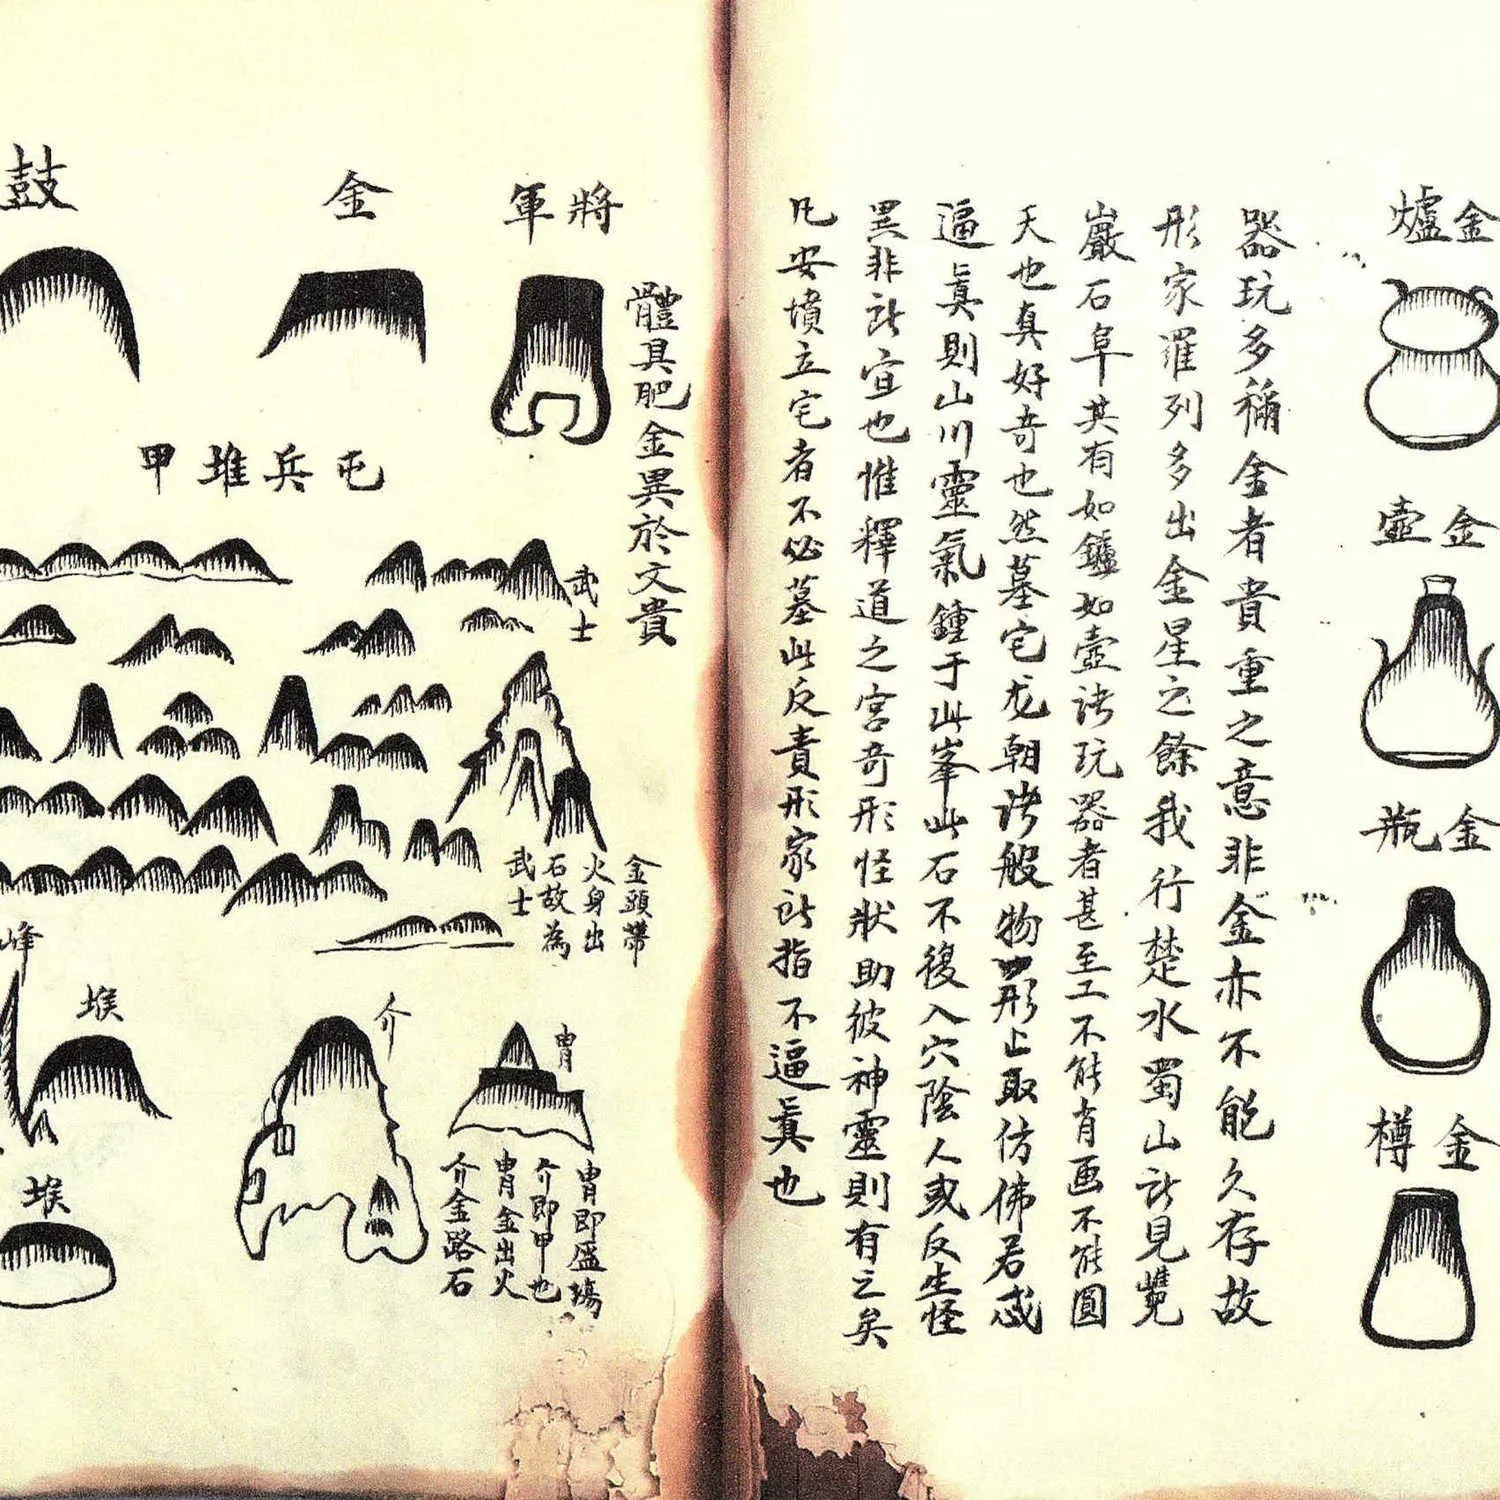 金爐
金壺
金瓶
金樽
器玩多稱金者貴重之意非金亦不能久存故
形家羅列多出金星之餘我行楚水蜀山所見
巖石阜其有如鑪如壺諸玩器者甚至工不能肖画不能圓
天也真好奇也然墓宅龙朝诸般物形上取仿佛若惑
逼真則山川靈氣鍾于此峯此石不復入穴陰人或反生怪
異非所宜也惟釋道之宮奇形怪狀助彼神靈則有之矣
凡安墳立宅者不必墓此反責形家所指不逼真也
體具肥金異於文貴
將軍
金
鼓
屯兵堆甲
武士
金頭帶
火身出
石故為
武士
峰
堠
介
冑
堠
冑即盔
介即甲也
冑金出火
介金路石